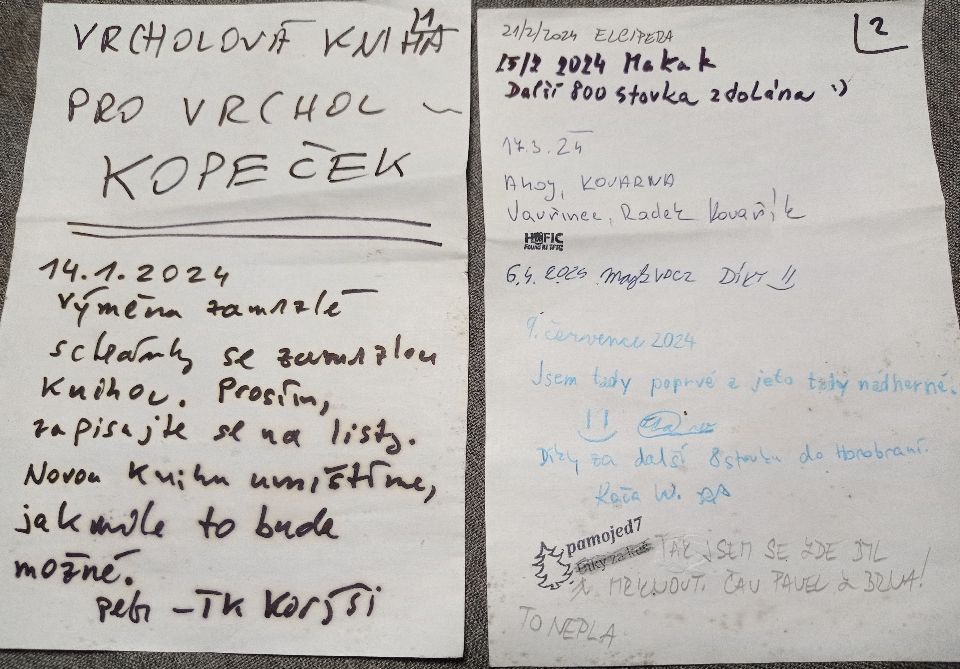 1
VRCHOLOVÁ KNIHA
PRO VRCHOL –
KOPEČEK
14.1.2024
Výměna zamrzlé
schránky se zamrzlou
knihou. Prosím,
zapisujte se na listy.
Novou knihu umístíme,
jakmile to bude
možné.
Petr – TK Korýši
2
21/2/2024 ELCIPERA
25/2 2024 Makak
Další 800 stovka zdolána :)
17.3.24
Ahoj, KOVARNA
Vavřinec, Radek Kovařík
6.4.2024 Díky
9. července 2024
Jsem tady poprvé a je to tady nádherné.
Díky za další 8stovku do Horobraní.
Káča W.
pamojed7
Díky za keš
TAK JSEM SE ZDE BYL
MRKNOUT. ČAU PAVEL Z BRNA!
TO NEPLA